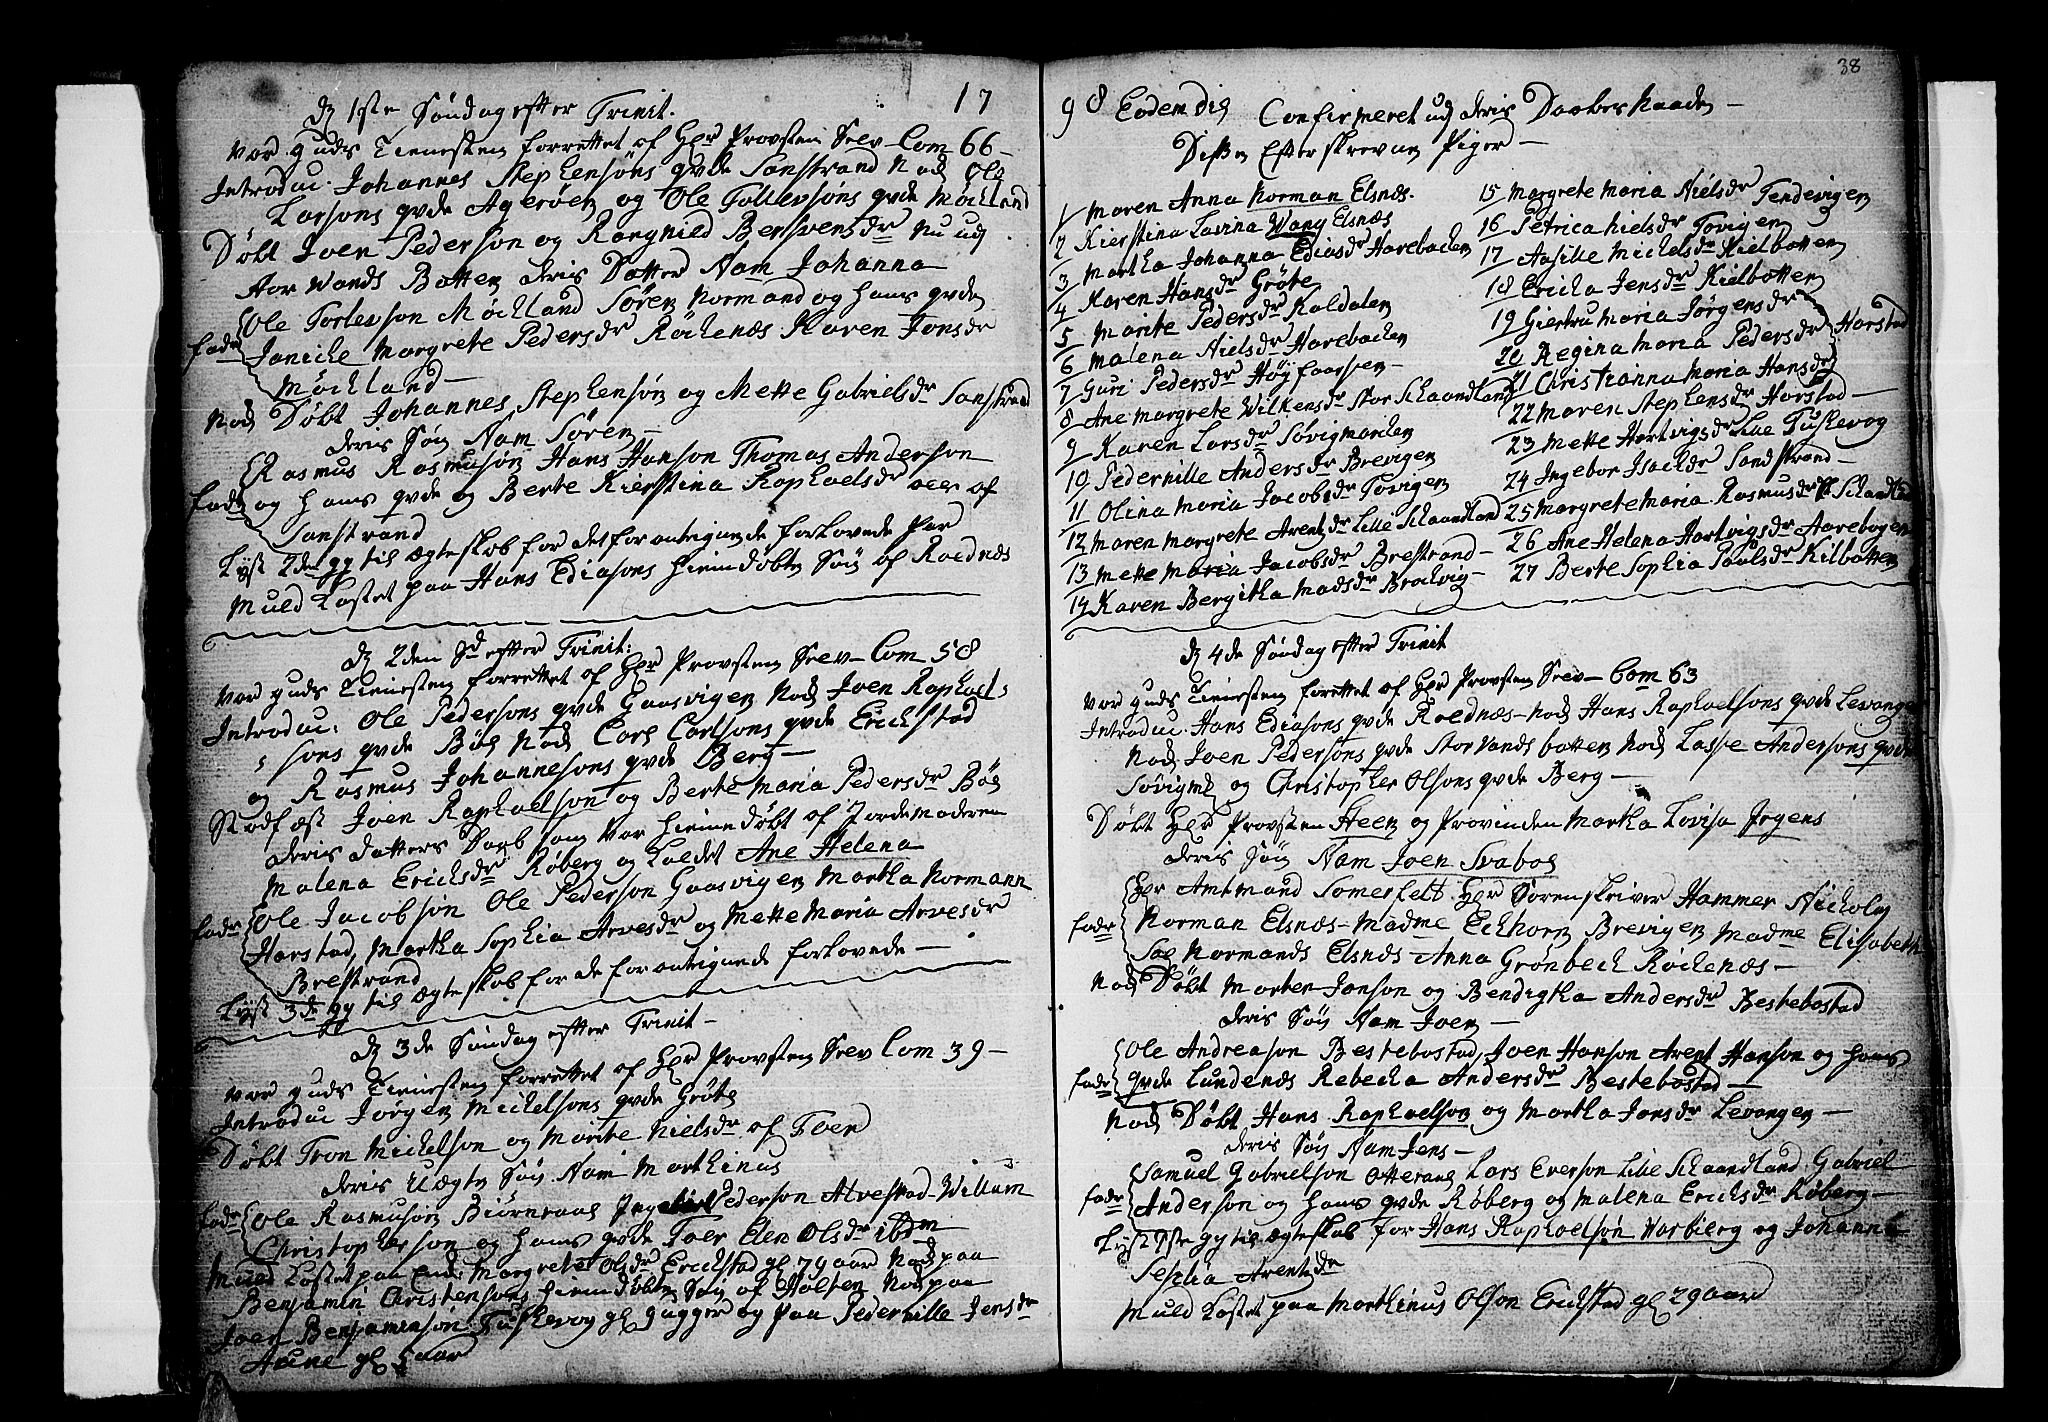 D 1ste Søndag efter Trinit. 17
Var Guds Tienesten forrettet af Hr Provsten Selv Com 66
Introduc. Johannes Stephensøns qvde Sanstrand Nok Ole
Larsons qvde Agerøen og Ole Tollevsøns qvde Møchland
Døbt Joen Pederson og Rangnild Bersvensdr nu ud
Stor Wands Botten deris Datter Nam Johanna
Ole Torlevson Møchland Søren Normand og hans qvde
fadr Janiche Margrete Pedersdr Røchenæs Karen Jonsdr
Møchland
Nok Døbt Johannes Stephensøn og Mette Gabrielsdr Sanstrad
deris Søn Nam Søren
Rasmus Rasmusøn Hans Hanson Thomas Anderson
fadr og hans qvde og Berte Kierstina Raphaelsdr alle af
Sanstrand
Lyst 2den gg til ægteskab for det forantegnede forlovede Par
Muld Kastet paa Hans Ediasons hiemdøbte Søn af Roednæs
D 2den Sd efter Trinit:
Var Guds Tienesten forrettet af Hr Provsten Selv Com 58
Introduc: Ole Pedersons qvde Gaasvigen Nok Joen Raphael-
sons qvde Bøe Nok Carl Carlsons qvde Erichstad
og Rasmus Johannesons qvde Berg
Stadfæst Joen Raphaelson og Berte Maria Pedersdr Bøe
deris datters Daab som var hiemmedøbt af Jordemoderen
Malena Erichsdr Røberg og kaldet Ane Helena
fadr Ole Jacobsøn Ole Pederson Gaasvigen Martha Normann
Harstad, Martha Sophia Arvesdr og Mette Maria Arvesdr
Brestrand
Lyst 3de gg til ægteskab for de forantegnede forlovede
D 3de Søndag efter Trinit
Var Guds Tienesten forrettet af Hr Provsten Selv Com 39
Introduc Jørgen Michelsons qvde Grøte
Døbt Tron Michelson og Marite Nielsdr af Toen
deris Uægte Søn Nam Marthinus
fadr Ole Rasmusøn Biørnraae Pederson Alvestad Willum
Christopherson og hans qvde Toer Elen Olsdr ibdm
Muld Kastet paa Enke Margrete Olsdr Erichstad gl 79 aar Nok paa
Benjamin Christensons hiemdøbte Søn af Holsten Nok paa
Joen Benjaminsøn Fuskevog gl gugger og paa Pedernille Jensdr
Aune gl 5 aar
38
98 Eodem Die Confirmeret ud deris Daabes Naade
Disse Efterskrevne Piger
1 Maren Anna Norman Elsnæs.
2 Kierstina Lavina Wang Elsnæs
3 Martha Johanna Ediasdr Harebachen
4 Karen Hansdr Grøte
5 Marite Pedersdr Kaldalen
6 Malena Nielsdr Harebachen
7 Guri Pedersdr Høgfaarsen
8 Ane Margrete Wilkensdr Stor Schaandland
9 Karen Larsdr Søvigmarchen
10 Pedernille Andersdr Brevigen
11 Olina Maria Jacobsdr Tøvigen
12 Maren Margrete Arentzdr Lille Schaandland
13 Mette Maria Jacobsdr Brestrand
14 Karen Bergitha Madsdr Brochvig
15 Margrete Maria Nielsdr Tendevigen
16 Petrica Nielsdr Tøvigen
17 Aasille Michelsdr Kielbotten
18 Ericha Jensdr Kielbotten
19 Giertru Maria Jørgensdr
20 Regina Maria Pedersdr Harstad
21 Christianna Maria Hansdr
22 Maren Stephensdr Harstad
23 Mette Hartvigsdr Lille Fuskevog
24 Ingebor Isachdr Sandstrand
25 Margrete Maria Rasmusdr Schandland
26 Ane Helena Hartvigsdr Aarebogen
27 Berte Sophia Paulsdr Kilbotten
D 4de Søndag efter Trinit
Var Guds Tienesten forettet af Hr Provsten Selv Com 63
Introduc. Hans Ediasons qvde Roednæs Nok Hans Raphaelsons qvde Levangen
Nok Joen Pedersons qvde Storvandsbotten Nok Lasse Andersons qvde
Søvigmk og Christopher Olsons qvde Berg
Døbt Hr Provsten Steen og Provinden Martha Lovisa Jrgens
deris Søn Nam Joen Svaboe
Hr Amtmand Somerfelt Hr Sorenskriver Hammer Nicholay
fadr Norman Elsnæs Madme Eckhorn Brevigen Madme Elisabeth
Soe Normands Elsnæs Anna Grønbech Røchenæs
Nok Døbt Morten Janson og Bendigtha Andersdr Bestebostad
deris Søn Nam Joen
Ole Andreason Bestebostad, Joen Hanson Arent Hanson og hans
fadr qvde Lundenæs Rebecka Andersdr Bestebostad
Nok Døbt Hans Raphaelson og Martha Jonsdr Levangen
deris Søn Nam Jens
Samuel Gabrielson Lars Everson Lille Schaandland Gabriel
fadr Anderson og hans qvde Røberg og Malena Erichsdr Røberg
Lyst 1ste gg til ægteskab for Hans Raphaelsøn Warbierg og Johanna
Sephia Arentzdr
Muld Kastet paa Marthinus Olson Erichstad gl 29 aar